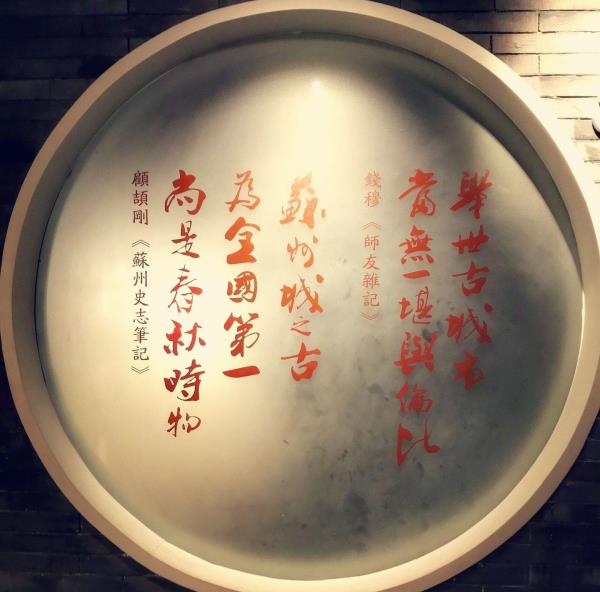 舉世古城市
當無一堪與倫比
錢穆《師友雜記》
蘇州城之古
為全國第一
尚是春秋時物
顧頡剛《蘇州史志筆記》